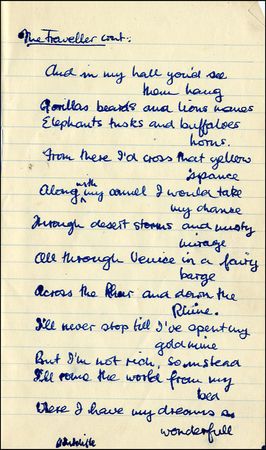 The Traveller cont:
And in my hall you'd see
them hang
Gorillas beards and lions manes
Elephants tusks and buffaloes
horns.
From there I'd cross that yellow
expance
Along with my camel I would take
my chance
Through desert storms and misty
mirage
All through Venice in a fairy
barge
Across the and down the
Rhine.
I'll never stop till I've spent my
goldmine
But I'm not rich, so instead
I'll rome the world from my
bed
Where I have my dreams
wonderfull